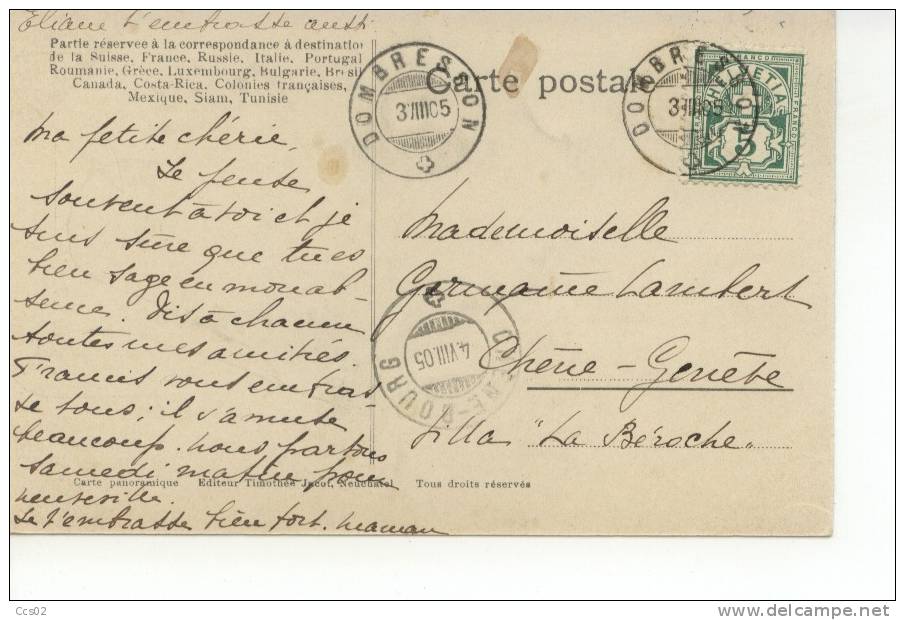 Eliane t'embrasse aussi
Partie réservee à la correspondance à destination
de la Suisse, France, Russie, Italie, Portugal
Roumanie, Grèce, Luxembourg, Bulgarie, Bresil
Canada, Costa-Rica, Colonies françaises,
Mexique, Siam, Tunisie
Carte postale
DOMBRESSON
3 VIII 05
DOMBRESSON
3 VIII 05
FRANCO
HELVETIA
5
Ma petite chérie,
Je pense
souvent à toi et je
suis sûre que tu es
bien sage en mon ab-
sence. Dis à chacun
toutes mes amitiés.
Francis vous embras-
se tous; il s'amuse
beaucoup. Nous partons
samedi matin pour
Neuveville.
Je t'embrasse bien fort. Maman
Mademoiselle
Germaine Lambert
Chêne-Genève
Villa "La Béroche"
CHÊNE-BOURG
4.VIII.05
Carte panoramique Editeur Timothée Jacot, Neuchâtel Tous droits réservés
Ccs02
delcampe.net